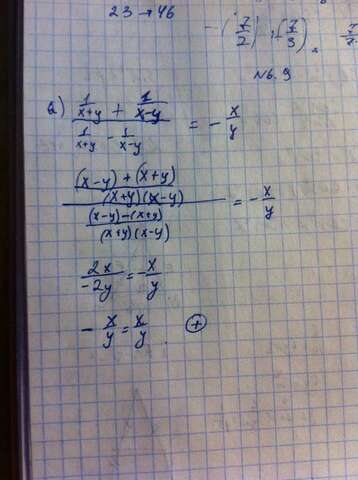 23 → 46
-(7/2)
(7/3)
№ 6.9
a) (1/(x+y) + 1/(x-y)) / (1/(x+y) - 1/(x-y)) = - x/y
(((x-y) + (x+y)) / ((x+y)(x-y))) / (((x-y)-(x+y)) / ((x+y)(x-y))) = - x/y
2x/-2y = - x/y
- x/y = x/y (+)